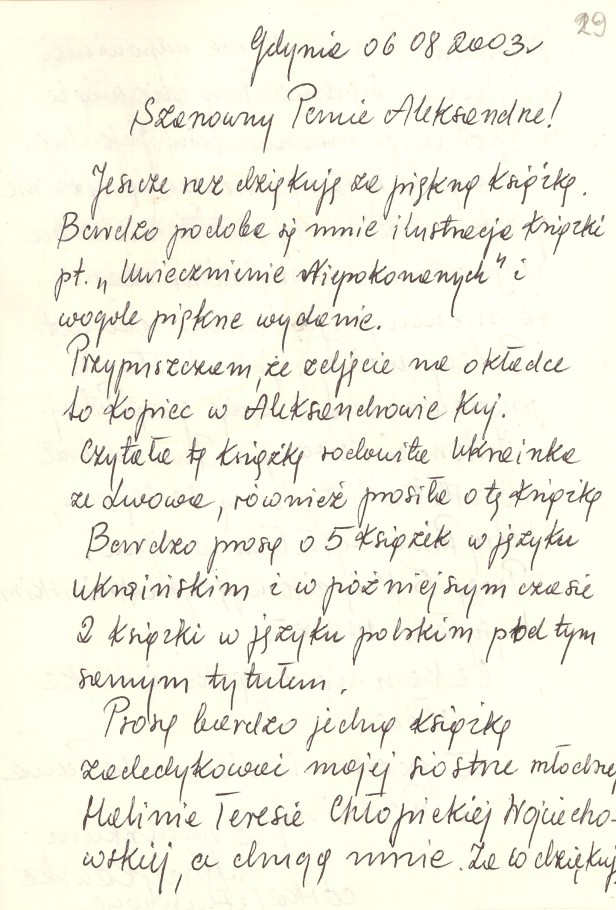 29
Gdynia 06 08 2003r
Szanowny Panie Aleksandrze!
Jeszcze raz dziękuję za piękną książkę.
Bardzo podoba się mnie ilustracja książki
pt. „Uwiecznienie Niepokonanych" i
wogóle piękne wydanie.
Przypuszczam, że zdjęcie na okładce
to kopiec w Aleksandrowie Kuj.
Czytała tę książkę rodowita Ukrainka
ze Lwowa, również prosiła o tę książkę
Bardzo proszę o 5 książek w języku
Ukraińskim i w późniejszym czasie
2 książki w języku polskim pod tym
samym tytułem.
Proszę bardzo jedną książkę
zadedykować mojej siostrze młodszej
Halinie Teresie Chłopickiej Wojciecho-
wskiej, a drugą mnie. Za co dziękuję